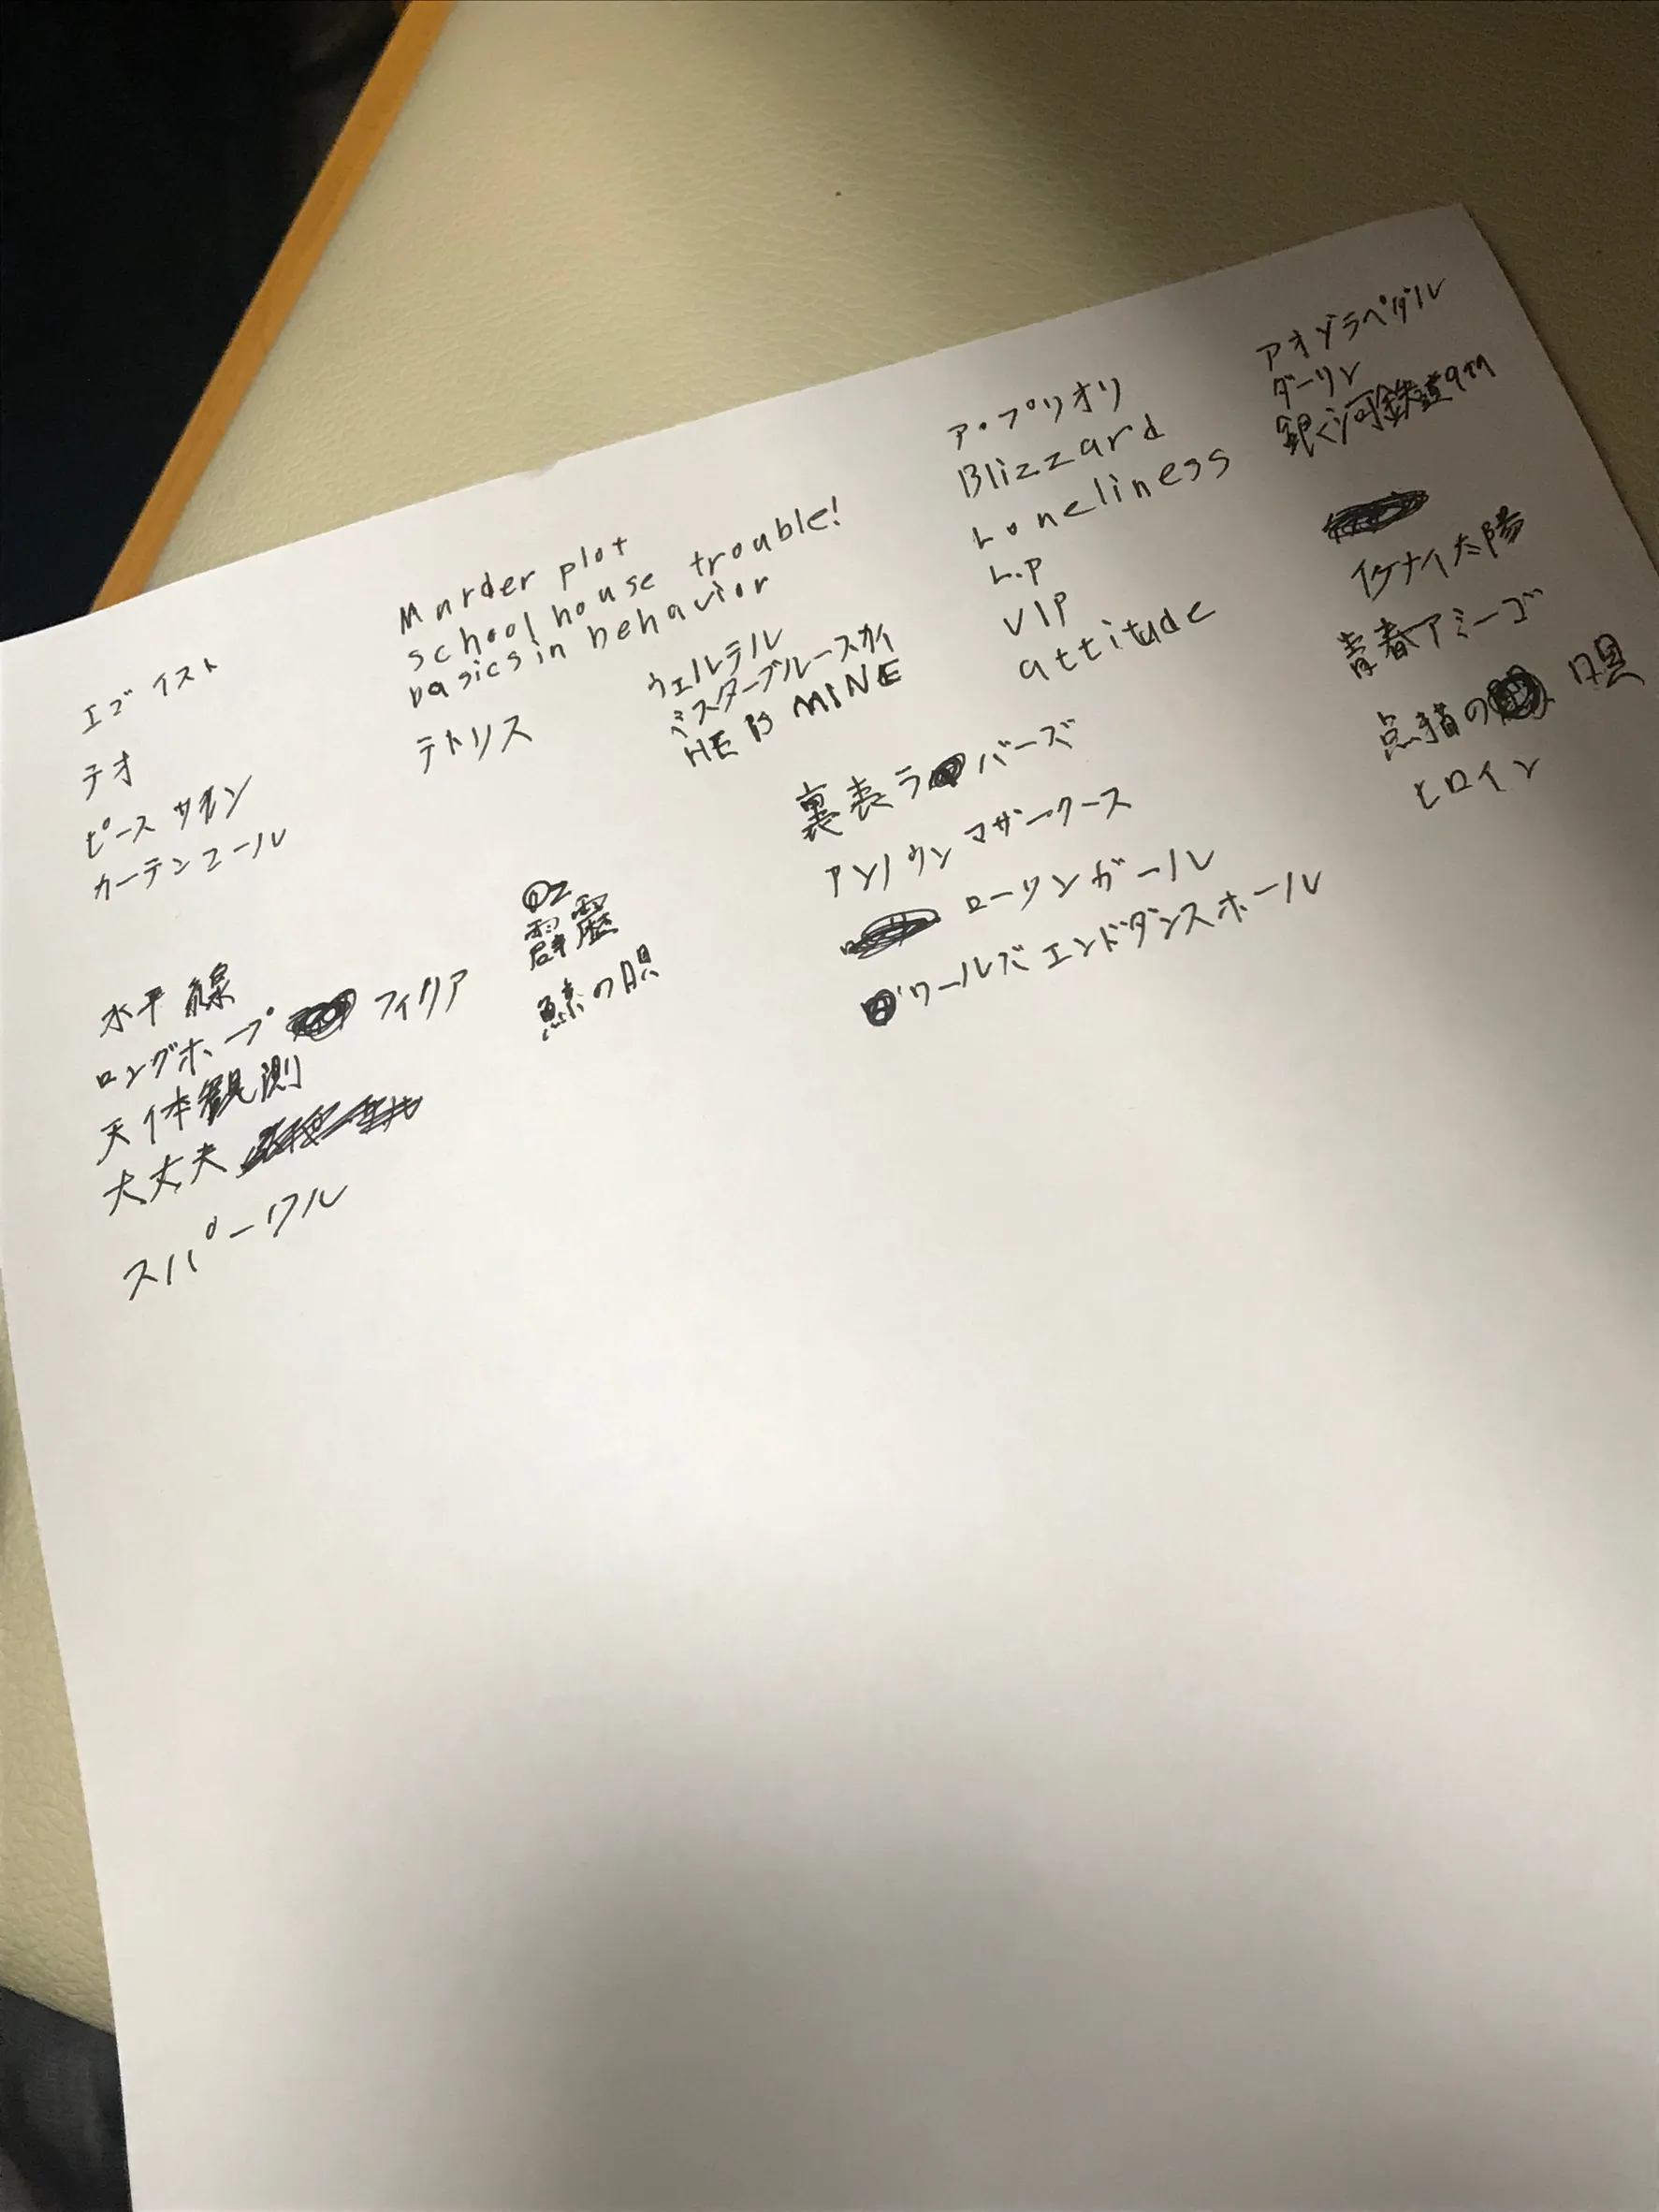 エゴイスト
テオ
ピースサイン
カーテンコール
水平線
ロングホープ フィリア
天体観測
大丈夫
スパークル
Murder plot
school house trouble!
basics in behavior
テトリス
Oz
霹靂
鯨の唄
ウェルテル
ミスターブルースカイ
HE IS MINE
裏表ラバーズ
アンノウンマザーグース
ローリンガール
ワールズエンドダンスホール
ア・プリオリ
Blizzard
Loneliness
L.p
VIP
attitude
アオゾラペダル
ダーリン
銀河鉄道999
イケナイ太陽
青春アミーゴ
点描の唄
ヒロイン